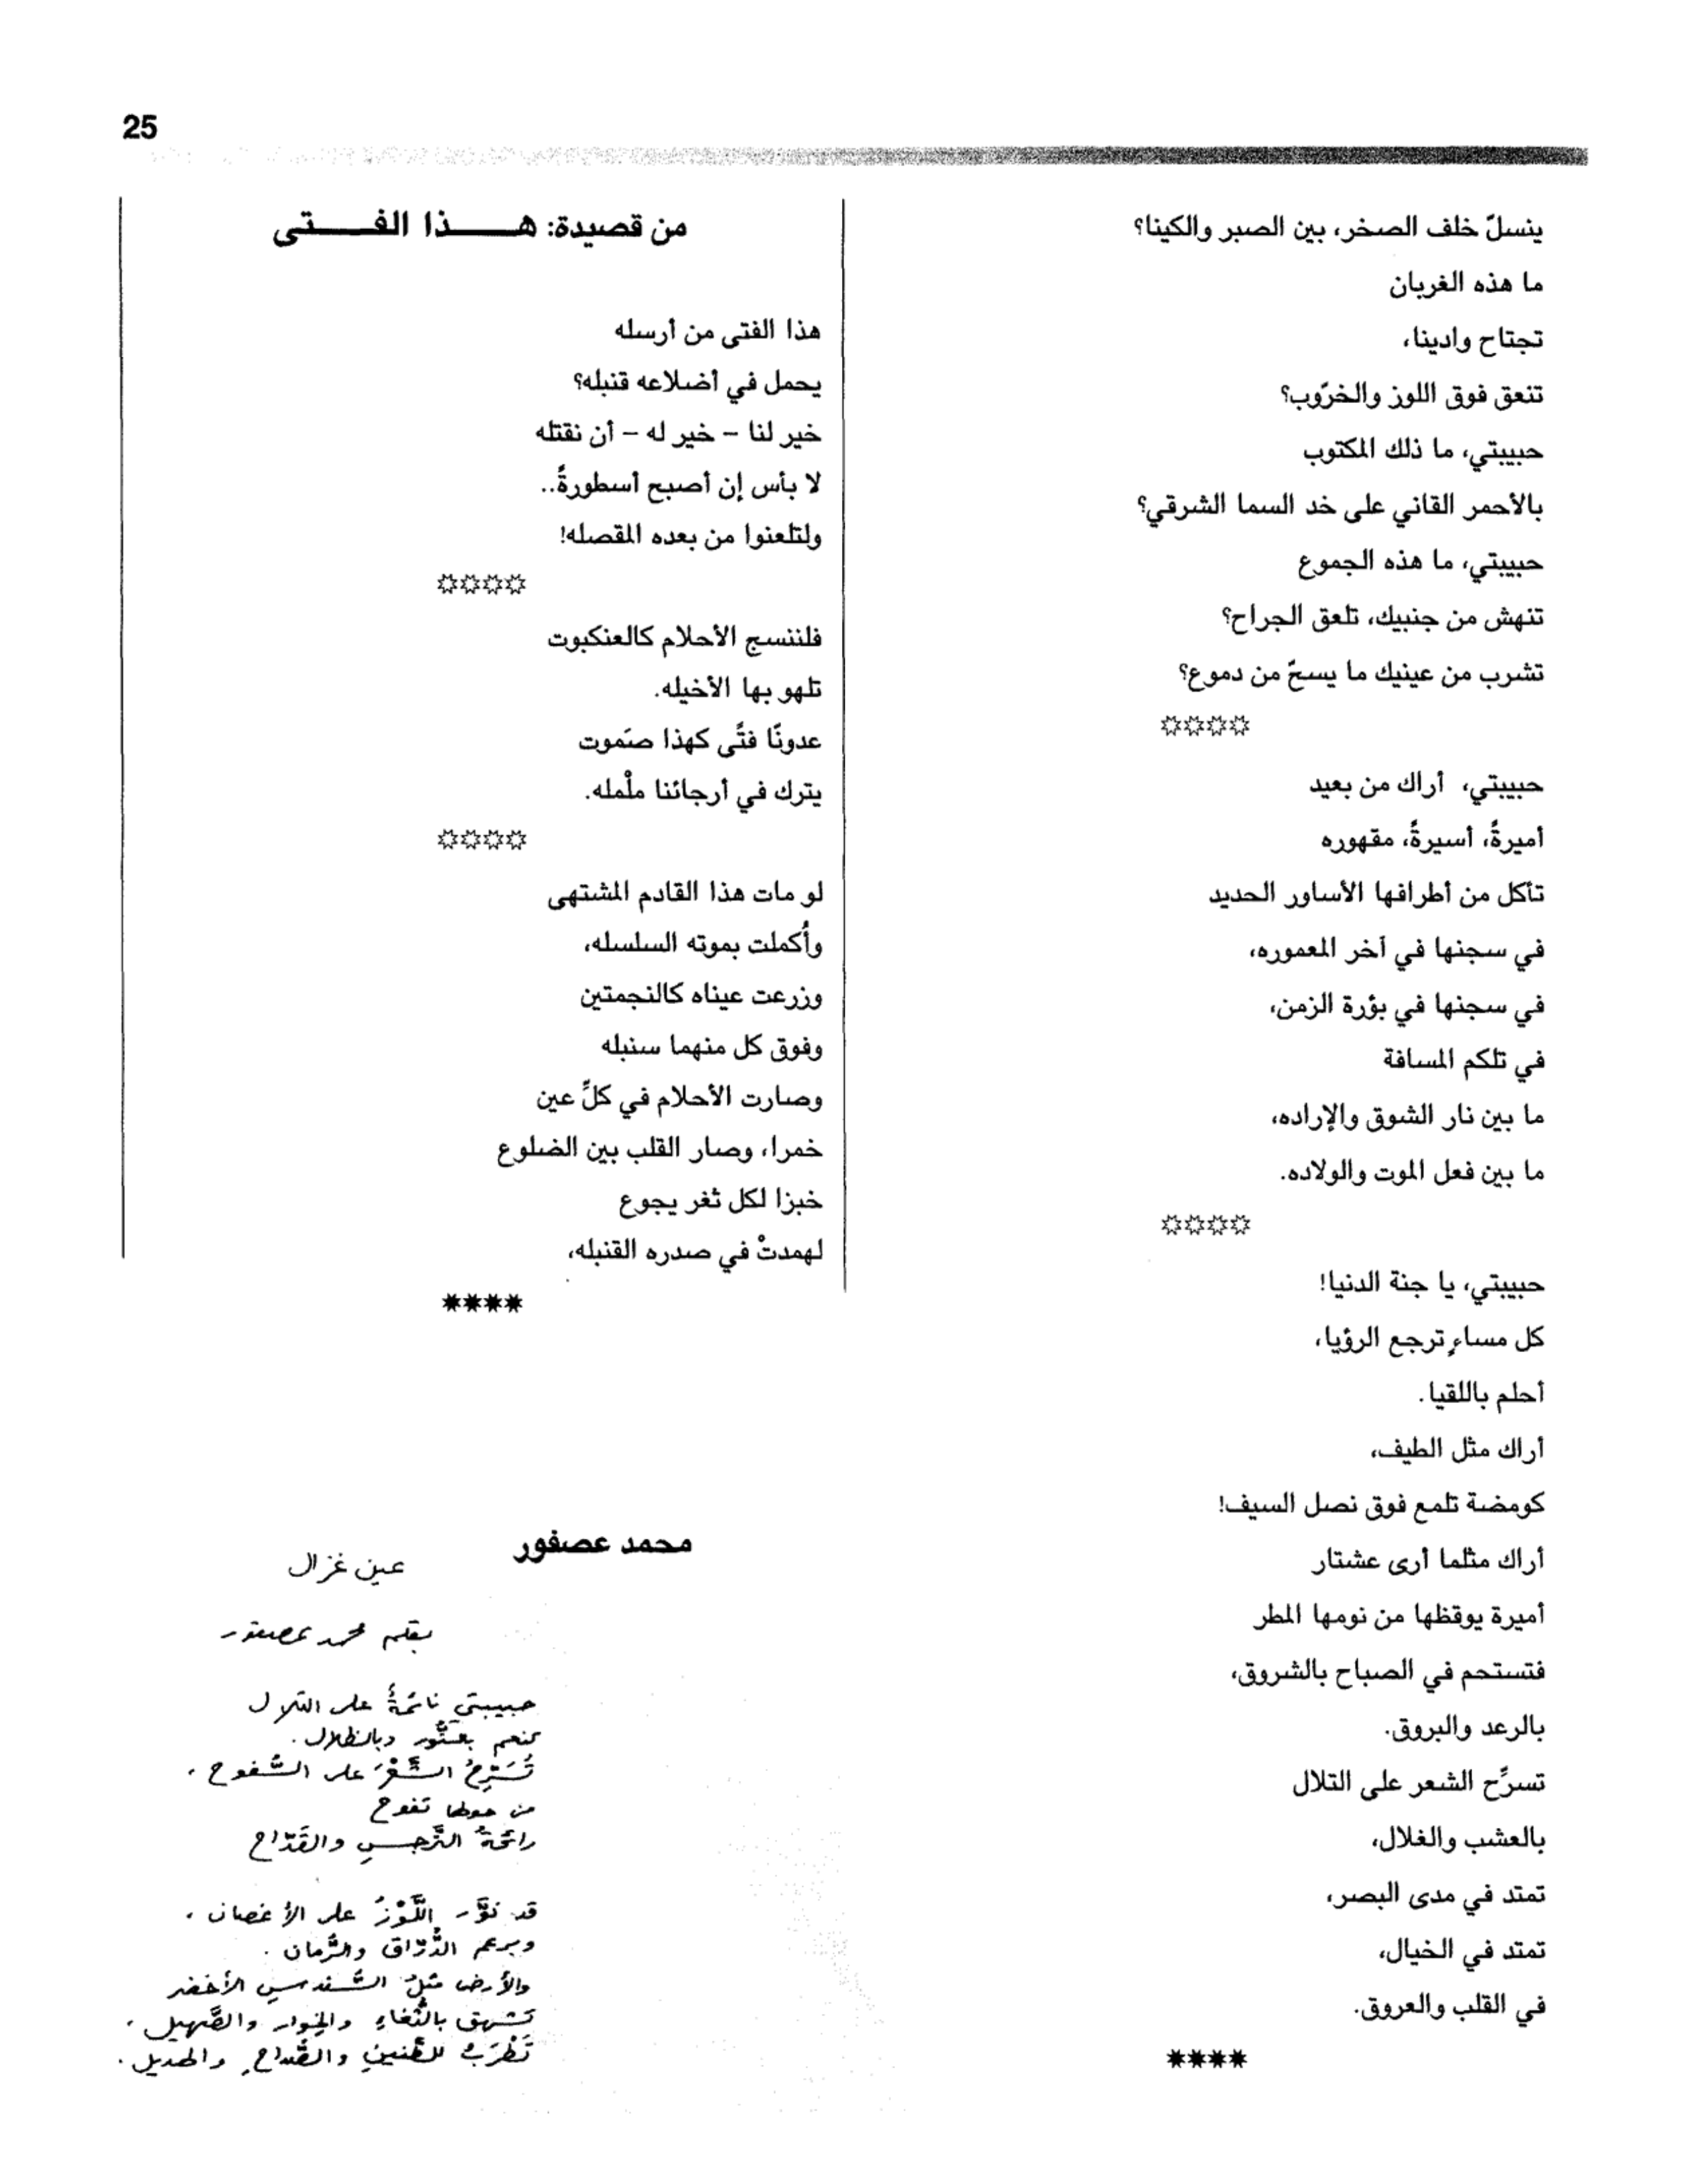 25
ينسلّ خلف الصخر، بين الصبر والكينا؟
ما هذه الغربان
تجتاح وادينا،
تنعق فوق اللوز والخرّوب؟
حبيبتي، ما ذلك المكتوب
بالأحمر القاني على خد السما الشرقي؟
حبيبتي، ما هذه الجموع
تنهش من جنبيك، تلعق الجراح؟
تشرب من عينيك ما يسحّ من دموع؟
☼☼☼☼
حبيبتي، أراك من بعيد
أميرةً، أسيرةً، مقهوره
تأكل من أطرافها الأساور الحديد
في سجنها في آخر المعموره،
في سجنها في بؤرة الزمن،
في تلكم المسافة
ما بين نار الشوق والإراده،
ما بين فعل الموت والولاده.
☼☼☼☼
حبيبتي، يا جنة الدنيا!
كل مساءٍ ترجع الرؤيا،
أحلم باللقيا.
أراك مثل الطيف،
كومضة تلمع فوق نصل السيف!
أراك مثلما أرى عشتار
أميرة يوقظها من نومها المطر
فتستحم في الصباح بالشروق،
بالرعد والبروق.
تسرّح الشعر على التلال
بالعشب والغلال،
تمتد في مدى البصر،
تمتد في الخيال،
في القلب والعروق.
****
من قصيدة: هـــذا الفـــتى
هذا الفتى من أرسله
يحمل في أضلاعه قنبله؟
خير لنا – خير له – أن نقتله
لا بأس إن أصبح أسطورةً..
ولتلعنوا من بعده المقصله!
☼☼☼☼
فلننسج الأحلام كالعنكبوت
تلهو بها الأخيله.
عدونّا فتًى كهذا صَموت
يترك في أرجائنا ملْمله.
☼☼☼☼
لو مات هذا القادم المشتهى
وأُكملت بموته السلسله،
وزرعت عيناه كالنجمتين
وفوق كل منهما سنبله
وصارت الأحلام في كلِّ عين
خمرا، وصار القلب بين الضلوع
خبزا لكل ثغر يجوع
لهمدتْ في صدره القنبله،
****
محمد عصفور
عين غزال
بقلم محمد عصفور
حبيبتي نائمةٌ على التلال
تنعم بالنّور وبالظلال.
تُسَرِّحُ الشَّعْرَ على السُّفوح،
من حولها تفوح
رائحةُ النَّرجسِ والقَدّاح
قد نوَّر اللَّوْزُ على الأغصان،
وبرعم الدُّرّاق والرُّمان.
والأرض مثلُ السُّندسِ الأخضر
تشهق بالثُّغاءِ والخوار والصَّهيل،
تَطْرَبُ للطَّنينِ والصُّداحِ والهديل.